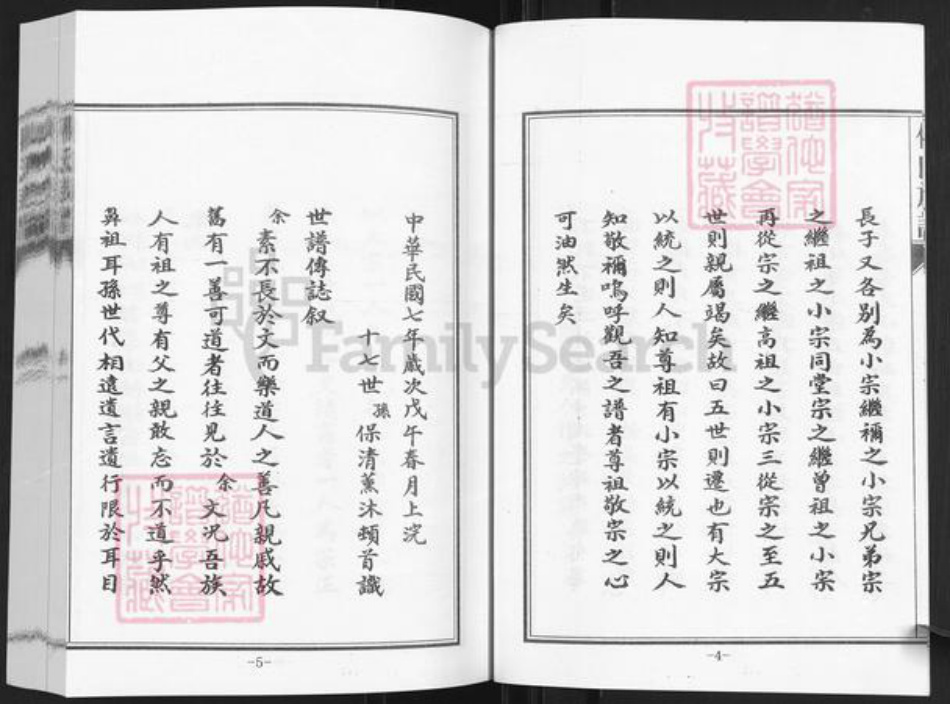 長子又各別為小宗繼禰之小宗兄弟宗
之繼祖之小宗同堂宗之繼曾祖之小宗
再從宗之繼高祖之小宗三從宗之至五
世則親屬竭矣故曰五世則遷也有大宗
以統之則人知尊祖有小宗以統之則人
知敬禰嗚呼觀吾之譜者尊祖敬宗之心
可油然生矣
-4-
中華民國七年歲次戊午春月上浣
十七世孫保清薰沐頓首識
世譜傳誌叙
余素不長於文而樂道人之善凡親戚故
舊有一善可道者往往見於余文況吾族
人有祖之尊有父之親敢忘而不道乎然
鼻祖耳孫世代相遠遺言遺行限於耳目
-5-
FamilySearch
譜學會
收藏
譜學會
收藏